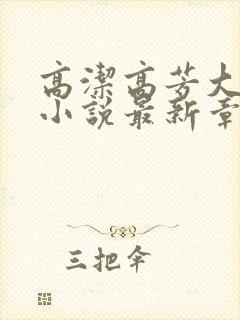 高潔高芳大
小說最新章
三把伞